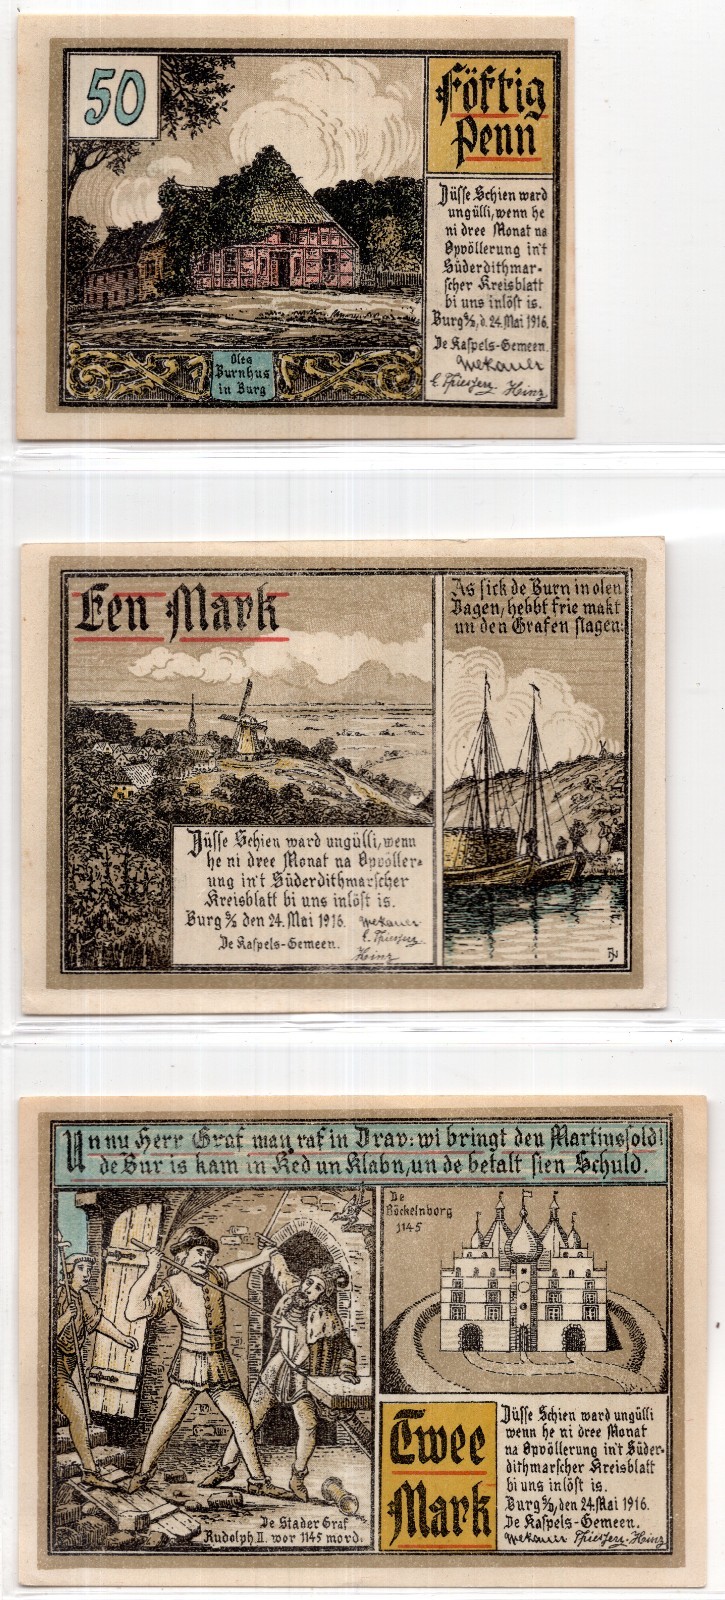 50
Föftig
Penn
Düsse Schien ward
ungülli, wenn he
ni dree Monat na
Opvöllerung in't
Süderdithmar-
scher Kreisblatt
bi uns inlöst is.
Burg S/D, d. 24. Mai 1916.
De Kaspels-Gemeen.
Oles
Burnhus
in Burg
Een Mark
As sick de Burn in olen
Dagen, hebbt frie makt
un den Grafen slagen:
Düsse Schien ward ungülli, wenn
he ni dree Monat na Opvöller-
ung in't Süderdithmarscher
Kreisblatt bi uns inlöst is.
Burg S/D den 24. Mai 1916.
De Kaspels-Gemeen.
Hinz
Un nu Herr Graf man raf in Drav: wi bringt den Martinssold!
de Bur is kam in Red un Klabn, un de betalt sien Schuld.
De
Böckelnborg
1145
De Stader Graf
Rudolph II. wor 1145 mord.
Twee
Mark
Düsse Schien ward ungülli
wenn he ni dree Monat
na Opvöllerung in't Süder-
dithmarscher Kreisblatt
bi uns inlöst is.
Burg S/D, den 24. Mai 1916.
De Kaspels-Gemeen.
Hinz